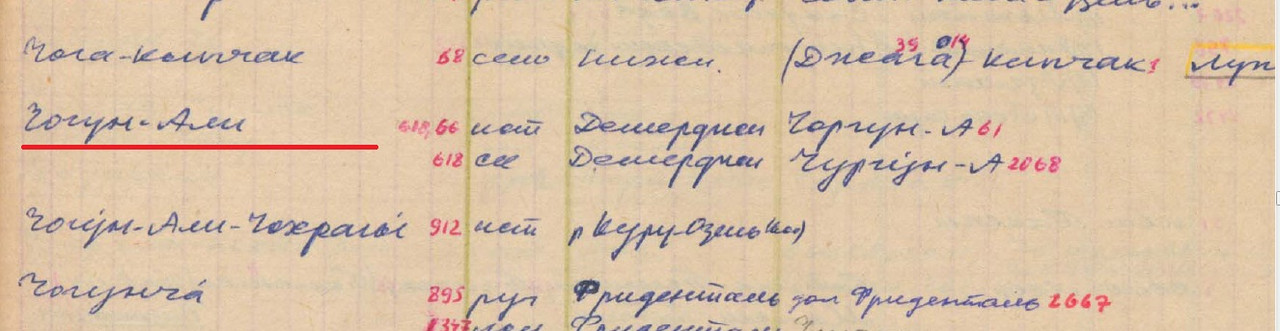 Чога-кипчак 68 село Нижн. (Джага) кипчак 35 014
Чогун-Али 618,66 ист Демерджи Чоргун-А 61
618 ск Демерджи Чургун-А 2068
Чогун-Али-Чохрагы 912 ист р Куру-Озень
Чогунча 895 руч Фриденталь дол Фриденталь 2667
Фриденталь